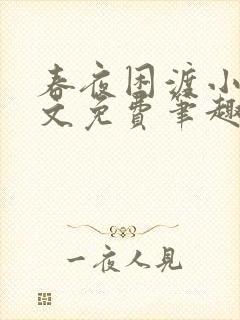 春夜困渡小
文免費笔趣
一夜人見